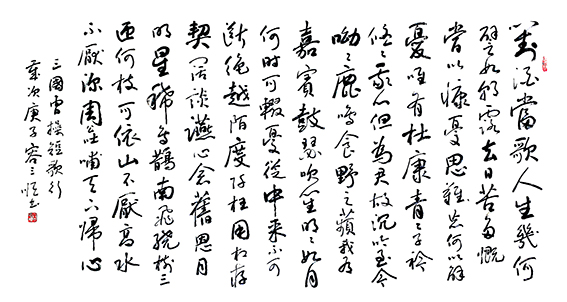 對酒當歌人生幾何
譬如朝露去日苦多慨
當以慷憂思難忘何以解
憂唯有杜康青々子衿
悠々我心但為君故沉吟至今
呦々鹿鳴食野之蘋我有
嘉賓鼓瑟吹笙明々如月
何時可輟憂從中來不可
斷絕越陌度阡枉用相存
契闊談讌心念舊恩月
明星稀烏鵲南飛繞樹三
匝何枝可依山不厭高水
不厭深周公哺天下歸心
三國曹操短歌行
歲次庚子